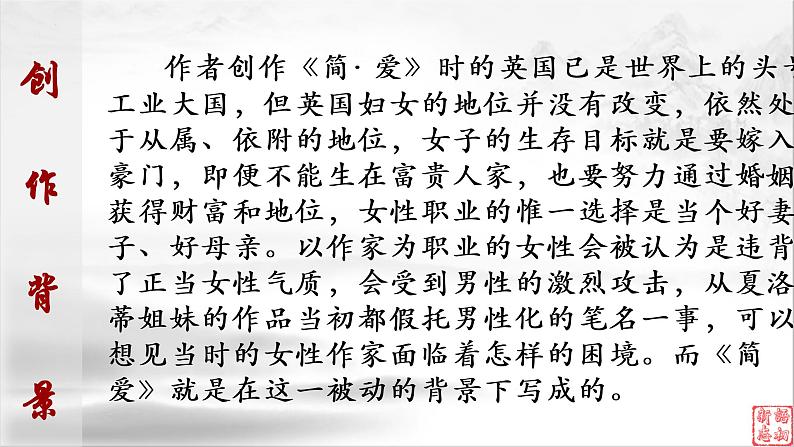 创作背景
作者创作《简·爱》时的英国已是世界上的头号
工业大国，但英国妇女的地位并没有改变，依然处
于从属、依附的地位，女子的生存目标就是要嫁入
豪门，即便不能生在富贵人家，也要努力通过婚姻
获得财富和地位，女性职业的惟一选择是当个好妻
子、好母亲。以作家为职业的女性会被认为是违背
了正当女性气质，会受到男性的激烈攻击，从夏洛
蒂姐妹的作品当初都假托男性化的笔名一事，可以
想见当时的女性作家面临着怎样的困境。而《简
爱》就是在这一被动的背景下写成的。
语初
新志